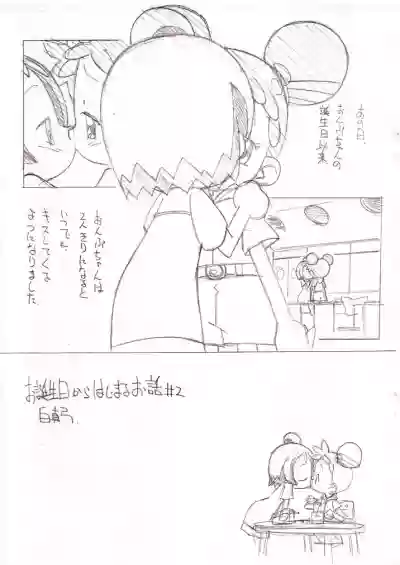 あの日、
おんぷちゃんの
誕生日以来
おんぷちゃんは
2人きりになると
いつでも、
キスしてくる
ようになりました
お誕生日からはじまるお話#2